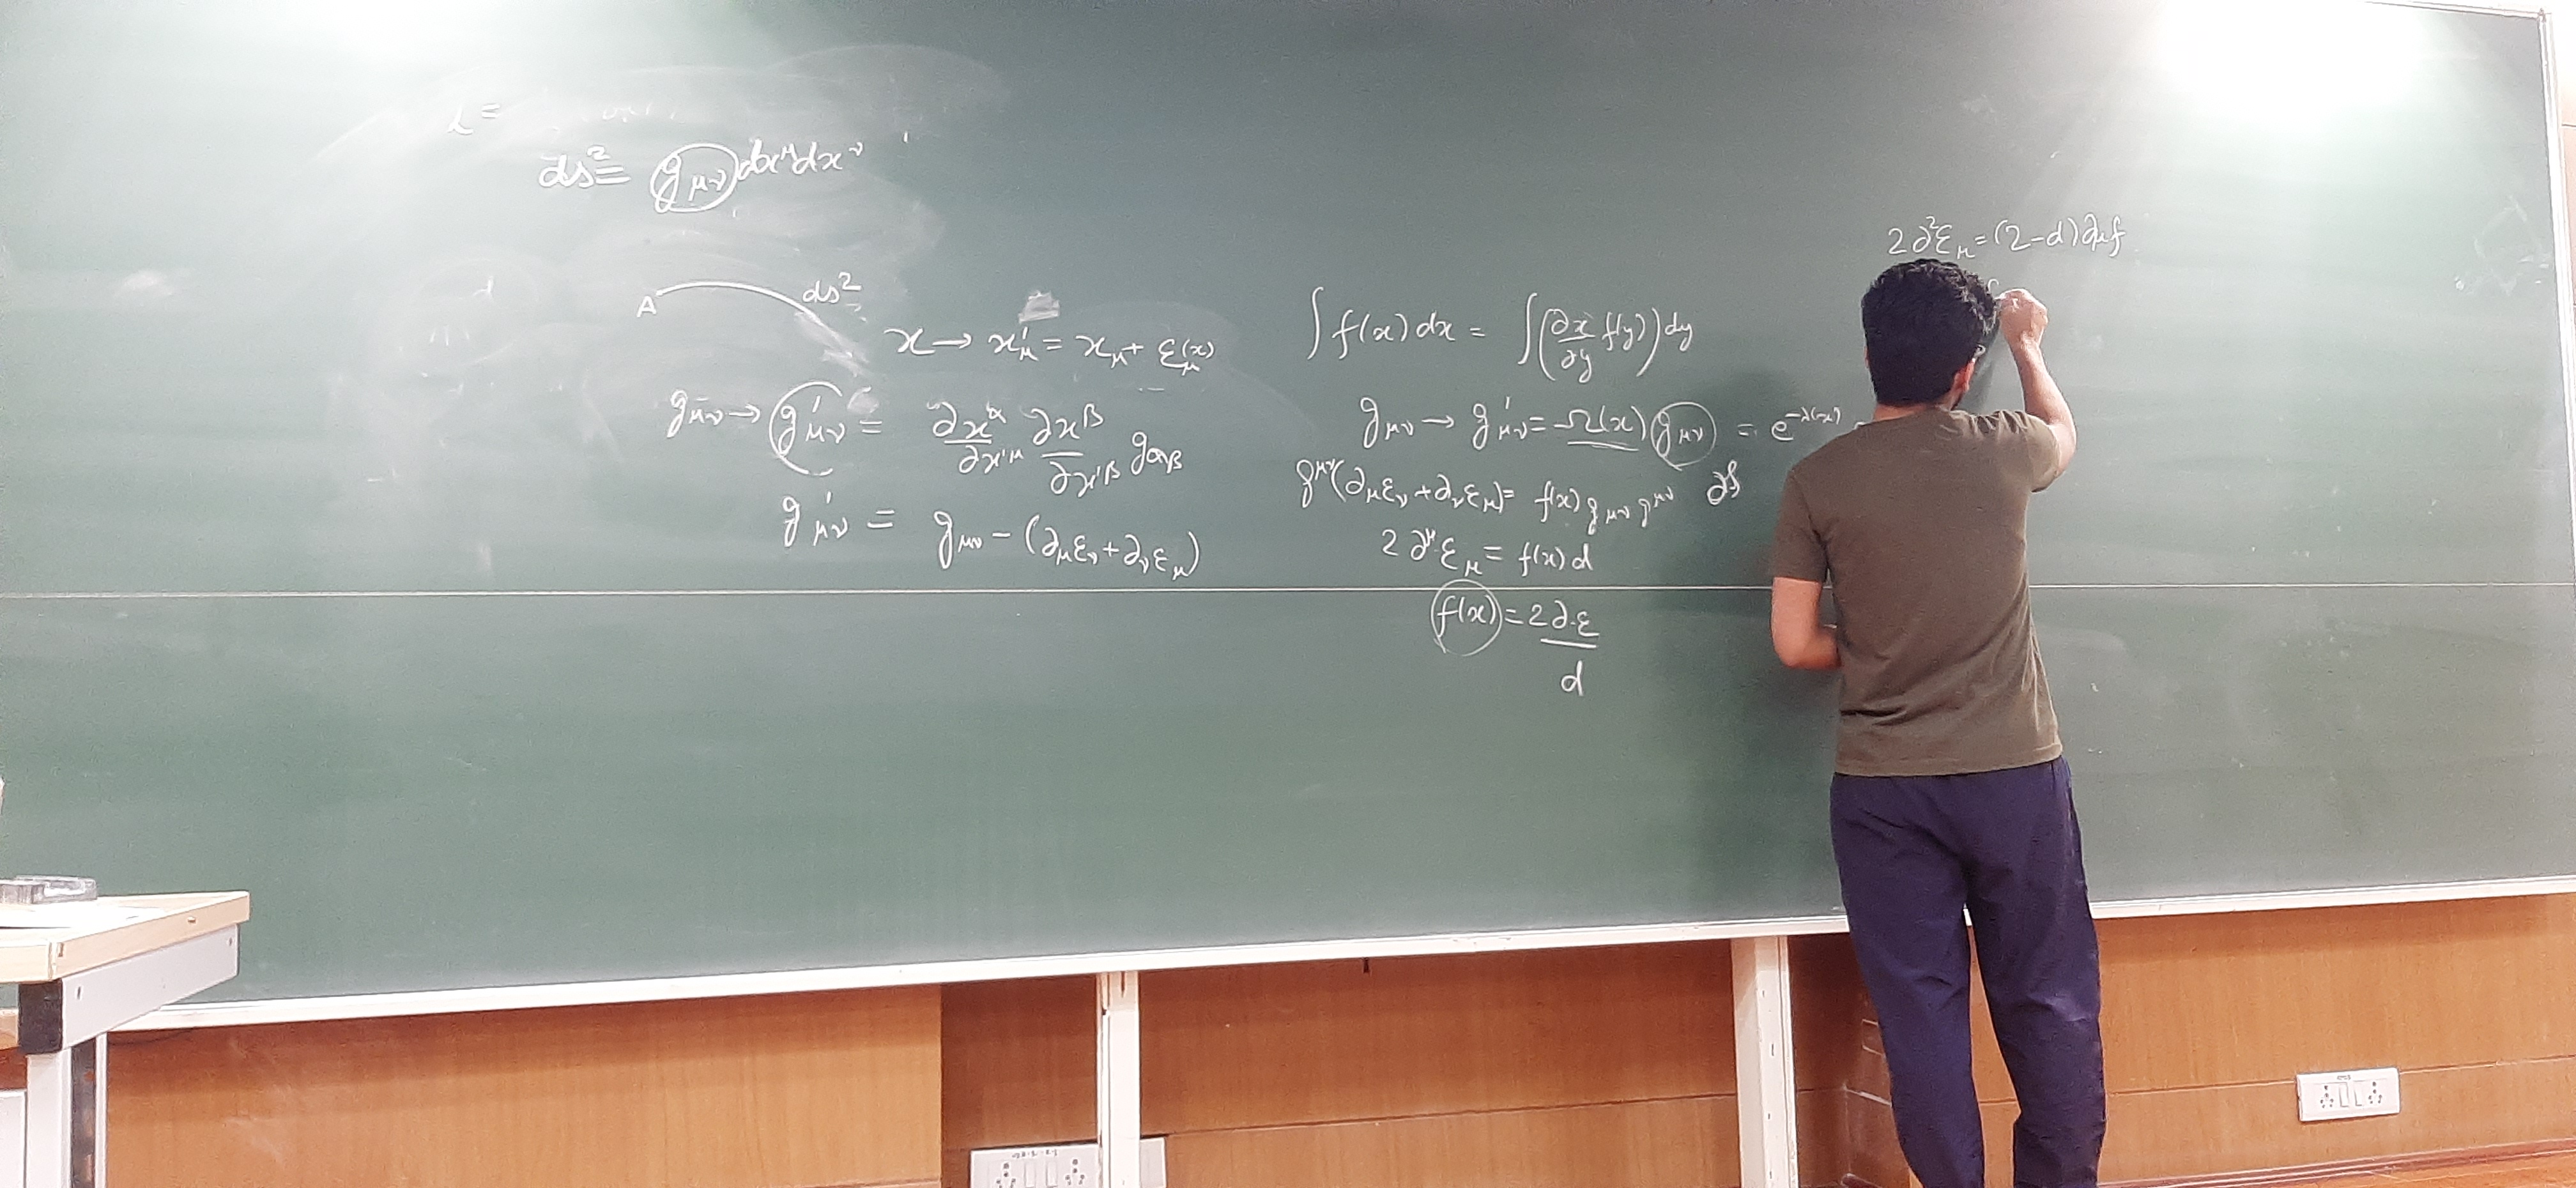 ds² ≡ g_μν dx^μ dx^ν
A ds²
x → x'_μ = x_μ + ε_μ(x)
g_μν → g'_μν = ∂x^α/∂x'^μ ∂x^β/∂x'^β g_αβ
g'_μν = g_μν - (∂_μ ε_ν + ∂_ν ε_μ)
∫ f(x) dx = ∫ (∂x/∂y f(y)) dy
g_μν → g'_μν = Ω(x) g_μν = e^{-λ(x)}
g^μν (∂_μ ε_ν + ∂_ν ε_μ) = f(x) g_μν g^μν
2 ∂^μ ε_μ = f(x) d
f(x) = 2 ∂·ε / d
2 ∂² ε_μ = (2-d) ∂_μ f